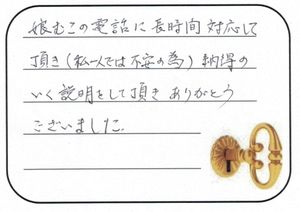 娘むこの電話に長時間対応して
頂き(私一人では不安の為)納得の
いく説明をして頂き ありがとう
ございました.